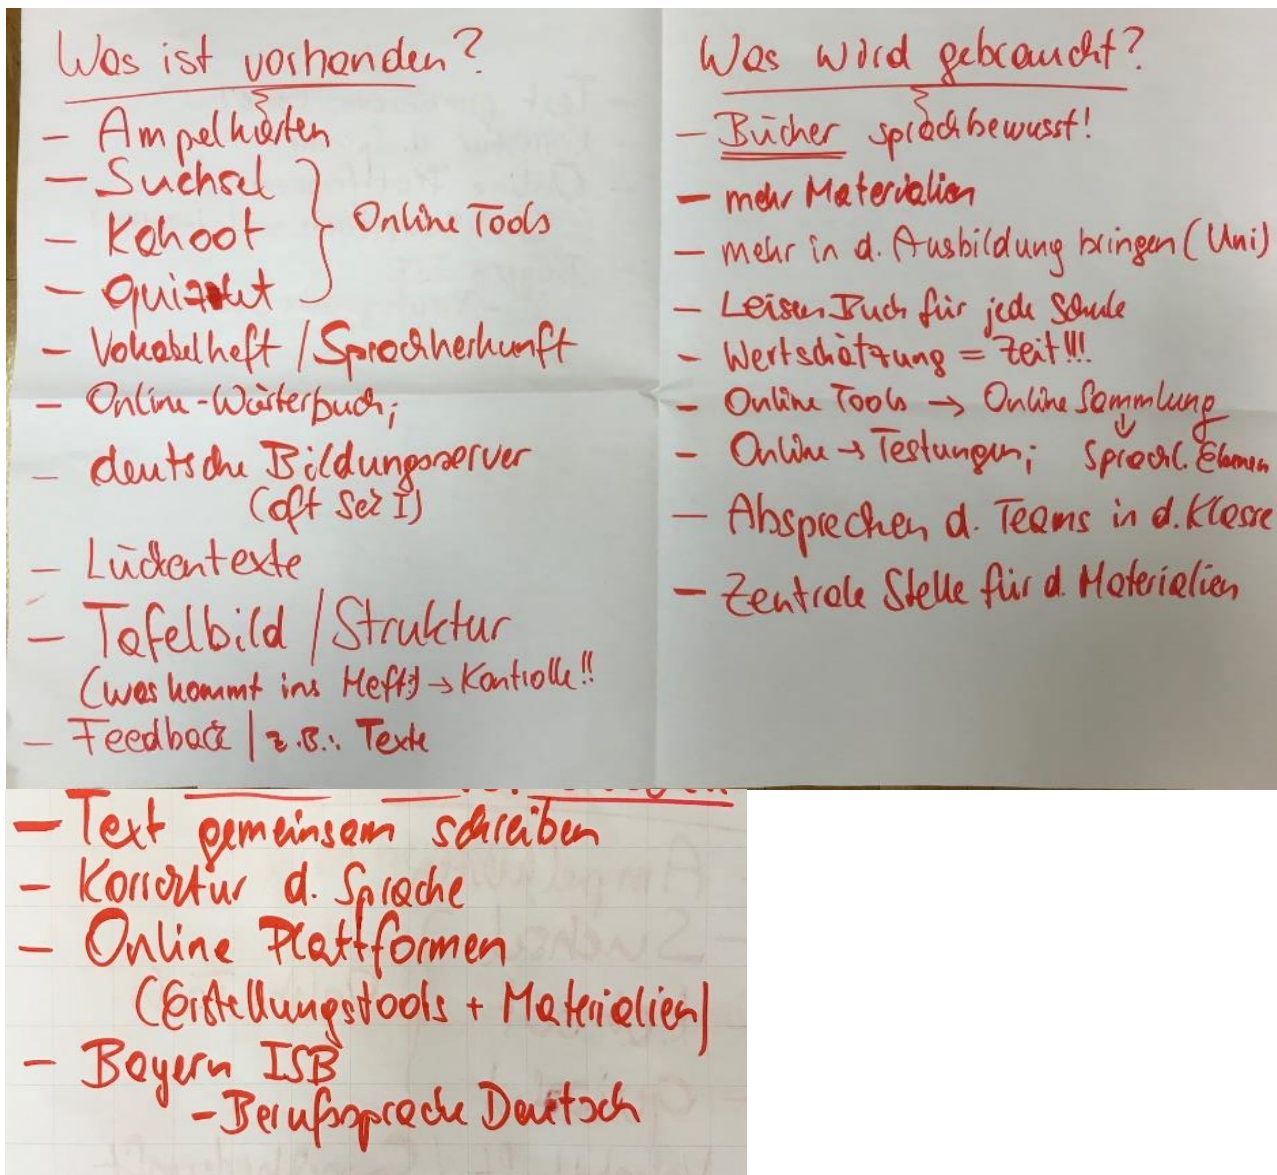 Was ist vorhanden?
- Ampelkarten
- Suchsel
- Kahoot
- Quizlet
Online Tools
- Vokabelheft / Sprachherkunft
- Online-Wörterbuch;
- deutsche Bildungsserver
(oft Sek I)
- Lückentexte
- Tafelbild / Struktur
(was kommt ins Heft) → Kontrolle!!
- Feedback | z.B.: Texte
Was wird gebraucht?
- Bücher sprachbewusst!
- mehr Materialien
- mehr in d. Ausbildung bringen (Uni)
- Leisen Buch für jede Schule
- Wertschätzung = Zeit!!!
- Online Tools → Online Sammlung
- Online → Testungen; Sprachl.
- Absprechen d. Teams in d. Klasse
- Zentrale Stelle für d. Materialien
- Text gemeinsam schreiben
- Korrektur d. Sprache
- Online Plattformen
(Erstellungstools + Materialien)
- Bayern ISB
- Berufssprache Deutsch